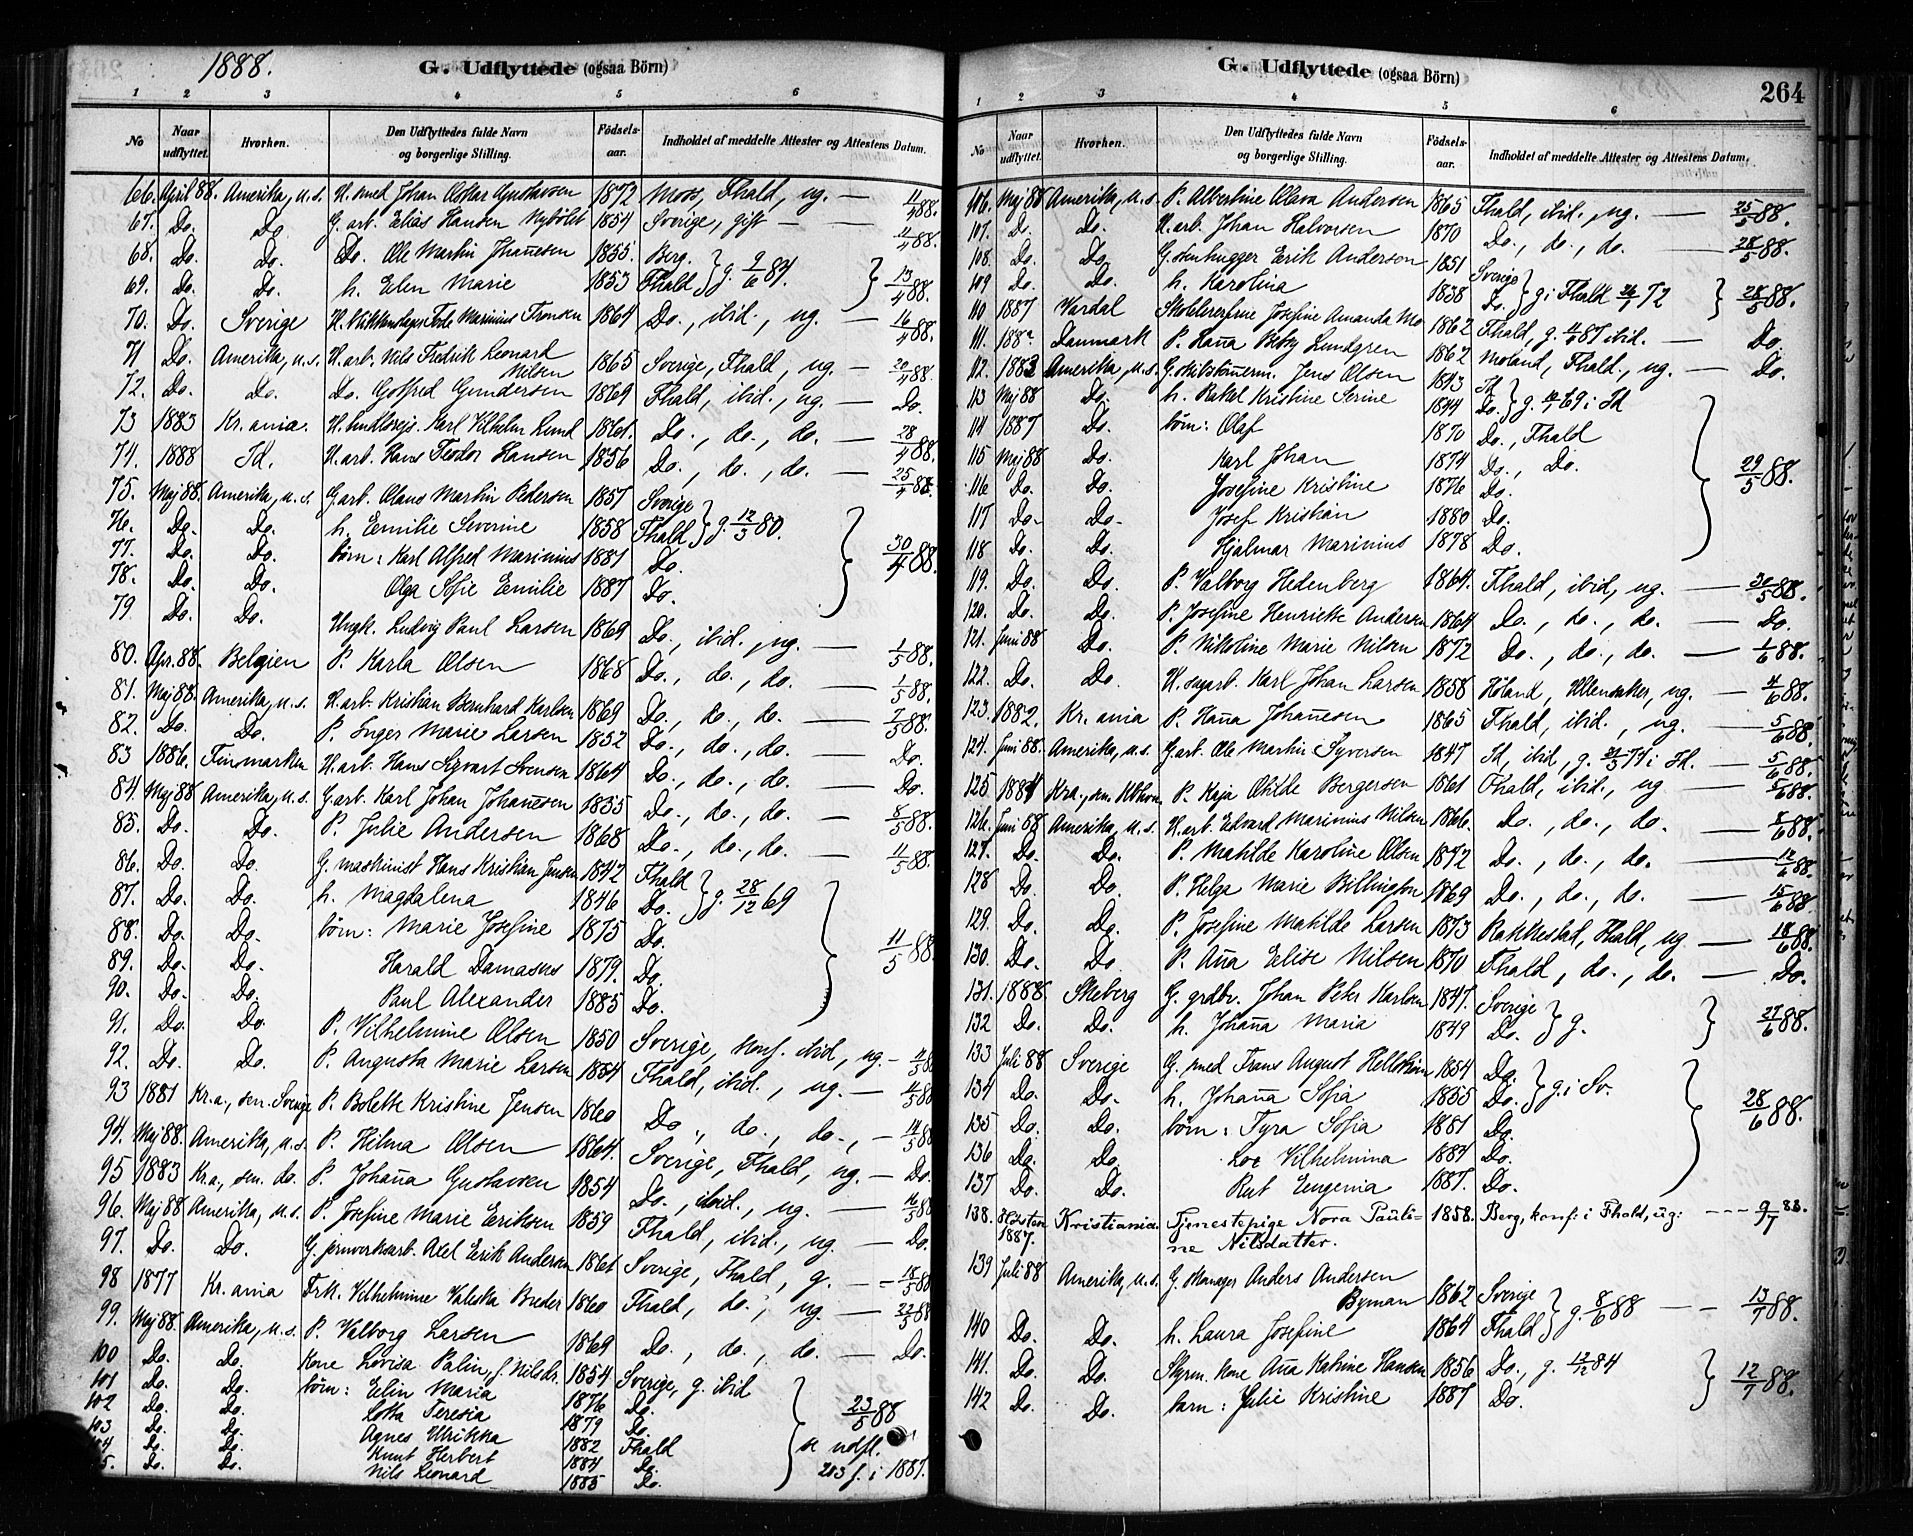 1888.
G. Udflyttede (ogsaa Börn)
1 2 3 4 5 6
No
Naar udflyttet.
Hvorhen.
Den Udflyttedes fulde Navn og borgerlige Stilling.
Födsels-aar.
Indholdet af meddelte Attester og Attestens Datum.
66. April 88. Amerika, u.s. U. med Johan Oskar Gustavsen 1872 Moss, Fhald, ug. — 11/4 88.
67. Do. Do. G. arb. Elias Hansen Nybölet 1854 Sverige, gift — 11/4 88.
68. Do. Do. Do. Ole Martin Johanesen 1855. Berg.
69. Do. Do. h. Elen Marie 1853 Fhald } g. 9/6 84. } 13/4 88.
70. Do. Sverige Marinius Fronsen 1864 Do., ibid., ug. — 16/4 88.
71 Do. Amerika, u.s. U. arb. Nils Fredrik Leonard
Nilsen 1865 Sverige, Fhald, ug. — 20/4 88.
72. Do. Do. Do. Gotfred Gundersen 1869 Fhald, ibid., ug. — Do.
73 1883 Kr. ania. Karl Vilhelm Lund 1861. Do., do., do. — 28/4 88.
74. 1888 Id. U. arb. Hans Teodor Hansen 1856 Do., do., do. — 25/4 88.
75. Maj 88. Amerika, u.s. G. arb. Olaus Martin Pedersen 1857 Sverige
76. Do. Do. h. Emilie Severine 1858 Fhald } g. 12/3 80.
77. Do. Do. børn: Karl Alfred Marinius 1881 Do. 30/4 88.
78. Do. Do. Olga Sofie Emilie 1887 Do.
79 Do. Do. Ungk. Ludvig Paul Larsen 1869 Do., ibid., ug. — 1/5 88.
80. Apr. 88. Belgien P. Karla Olsen 1868 Do., do., do. — 1/5 88.
81. Maj 88. Amerika, u.s. U. arb. Kristian Bernhard Karlsen 1869 Do., do., do. — 7/5 88.
82. Do. Do. P. Inger Marie Larsen 1852 Do., do., do. — Do.
83 1886. Finmarken U. arb. Hans Sigvart Svensen 1864 Do., do., do. — Do.
84. Maj 88 Amerika, u.s. G. arb. Karl Johan Johanesen 1855 Do., do., do. — 8/5 88.
85. Do. Do. P. Julie Andersen 1868 Do., do., do. — 11/5 88.
86. Do. Do. G. maskinist Hans Kristian Jensen 1842 Fhald
87. Do. Do. h. Magdalena 1846 Do. } g. 28/12 69
88. Do. Do. børn: Marie Josefine 1875 Do. 11/5 88
89. Do. Do. Harald Damasus 1879. Do.
90. Do. Do. Paul Alexander 1885 Do.
91. Do. Do. P. Vilhelmine Olsen 1850 Sverige, konf. ibid, ug. — 11/5 88
92. Do. Do. P. Augusta Marie Larsen 1864 Fhald, ibid., ug. — 11/5 88
93 1881 Kr.a., sen. Sverige P. Bolette Kristine Jensen 1860 Do., do., do., — 14/5 88
94. Maj 88. Amerika, u.s. P. Hilma Olsen 1864. Sverige, Fhald, ug. — Do.
95 1883 Kr.a., sen. do. P. Johana Gustavsen 1854 Do., ibid., ug. — 16/5 88
96. Maj 88 Amerika, u.s. P. Josefine Marie Eriksen 1859 Fhald, ibid., ug. — Do.
97. Do. Do. G. jernverksarb. Axel Erik Andersen 1861 Sverige, Fhald, g. — 18/5 88
98 1877 Kr. ania Frk. Vilhelmine Valeska Breder 1860 Fhald, do., ug. — 22/5 88
99. Maj 88. Amerika, u.s. P. Valborg Larsen 1869 Do., do., do. — Do.
100 Do. Do. Kone Lovisa Palin, f. Nilsdr. 1854 Sverige, g. ibid
101 Do. Do. børn: Elin Maria 1876 Do.
102 Do. Do. Lotta Teresia 1879 Do. 23/5 88
103 Do. Do. Agnes Ulrikka 1882 Fhald
104 Do. Do. Knut Herbert 1884 Do. udfl.
5. Do. Do. Nils Leonard 1885 Do. 203 f. i 1887.
G. Udflyttede (ogsaa Börn)
264
1 2 3 4 5 6
No
Naar udflyttet.
Hvorhen.
Den Udflyttedes fulde Navn og borgerlige Stilling.
Födsels-aar.
Indholdet af meddelte Attester og Attestens Datum.
106. Maj 88 Amerika, u.s. P. Albertine Olava Andersen 1865 Fhald, ibid., ug. — 25/5 88.
107. Do. Do. U. arb. Johan Halvorsen 1870 Do., do., do. — 28/5 88.
108. Do. Do. G. stenhugger Erik Anderson 1851 Sverige
109 Do. Do. h. Karolina 1838 Do. } g. i Fhald 26/7 72 } 28/5 88.
110 1887 Vardal Josefine Amanda Mo 1862 Fhald, g. 4/6 87 ibid. — Do.
111. 188 Danmark P. Hana Betzy Lundgren 1862 Moland, Fhald, ug. — Do.
112. 1883 Amerika, u.s. G. skibstömerm. Jens Olsen 1843 Id
113 Maj 88 Do. h. Rakel Kristine Serine 1844 Do. } g. 10/1 69 i Id
114 1887 Do. børn: Olaf 1870 Do., Fhald
115 Maj 88 Do. Karl Johan 1874 Do., Do. 29/5 88.
116 Do. Do. Josefine Kristine 1876 Do.
117 Do. Do. Josef Kristian 1880 Do.
118 Do. Do. Hjalmar Marinius 1878 Do.
119. Do. Do. P. Valborg Hedenberg 1864. Fhald, ibid, ug. — 30/5 88.
120. Do. Do. P. Josefine Henriette Andersen 1864 Do., do., do. — Do.
121. Juni 88 Do. P. Nikoline Marie Nilsen 1872 Do., do., do. — 1/6 88.
122. Do. Do. U. sagarb. Karl Johan Larsen 1858 Høland, Ullensaker, ug. — 4/6 88.
123. 1882. Kr. ania P. Hana Johanesen 1865 Fhald, ibid., ug. — 5/6 88.
124. Juni 88. Amerika, u.s. G. arb. Ole Martin Syversen 1847 Id, ibid, g. 21/5 74 i Id. — 5/6 88.
125. 1884 Kra., sen. Kbhvn P. Kaja Otilde Bergersen 1861 Fhald, ibid., ug — 5/6 88.
126. Juni 88 Amerika, u.s. U. arb. Edvard Marinius Nilsen 1866. Do., do., do. — 5/6 88.
127. Do. Do. P. Matilde Karoline Olsen 1872 Do., do., do. — 12/6 88.
128 Do. Do. P. Helga Marie Billington 1869 Do., do., do. — 15/6 88.
129. Do. Do. P. Josefine Matilde Larsen 1873 Rakkestad, Fhald, ug — 18/6 88.
130. Do. Do. P. Ana Elise Nilsen 1870 Fhald, do., do. — Do.
131. 1888. Skeberg G. grdbr. Johan Peter Karlsen 1847. Sverige
132 Do. Do. h. Johana Maria 1849 Do. } g. } 27/6 88.
133 Juli 88 Sverige G. smed Frans August Hellström 1854 Do.
134 Do. Do. h. Johana Sofia 1855 Do. } g. i Sv.
135 Do. Do. børn: Tyra Sofia 1881 Do. 28/6 88.
136 Do. Do. Vilhelmina 1884 Do.
137 Do. Do. Rut Eugenia 1887. Do.
138. Høsten 1887. Kristiania. Tjenestepige Nora Pauli-
ne Nilsdatter. 1858. Berg, konf: i Fhald, ug: --- 9/7 88.
139 Juli 88 Amerika, u.s. G. Anders Andersen
Byman 1862 Sverige
140 Do. Do. h. Laura Josefine 1864 Fhald } g. 8/6 88 — 13/7 88.
141. Do. Do. Styrm. kone Ana Katrine Hansen 1856 Do., g. 12/2 84
142 Do. Do. barn: Julie Kristine 1887 Do. } 12/7 88.